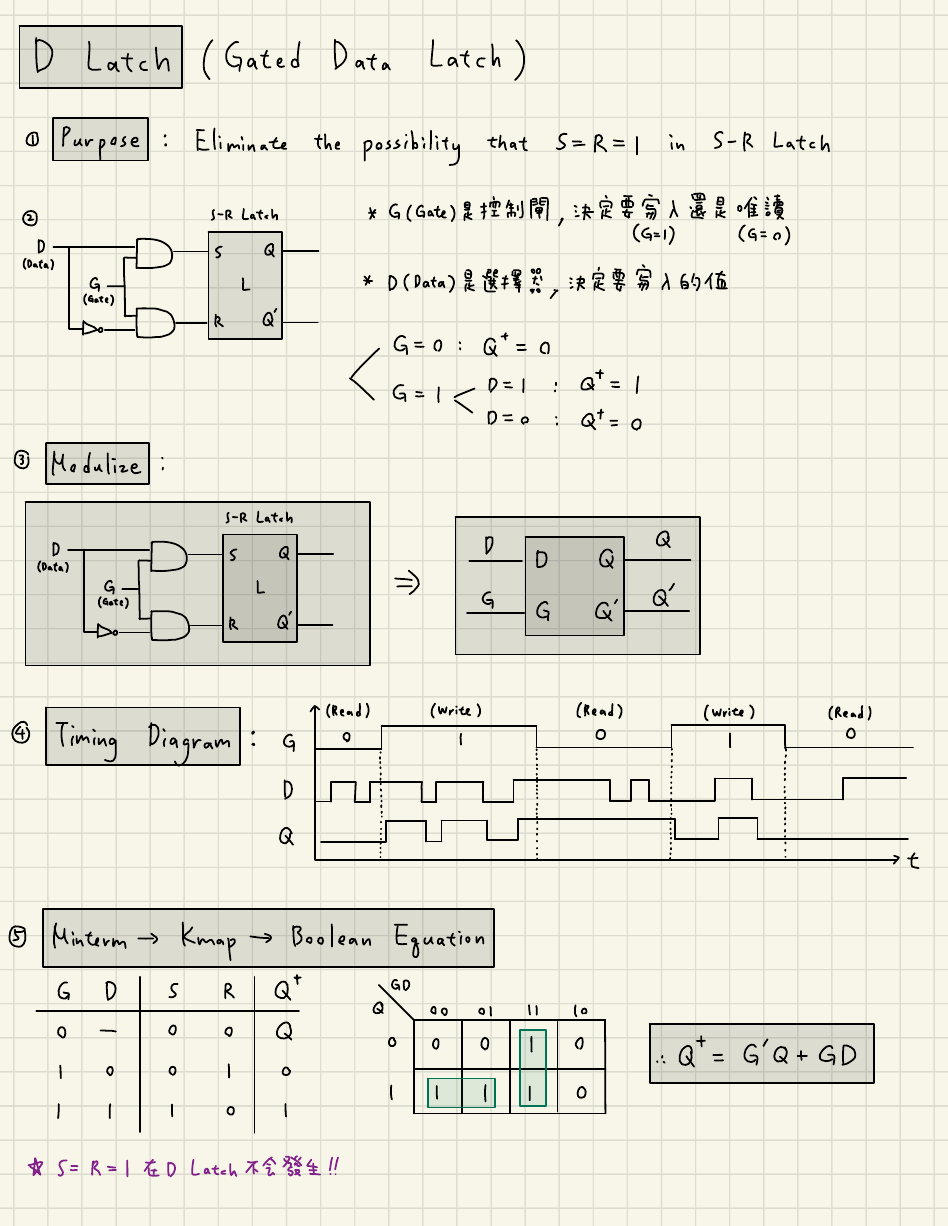 D Latch (Gated Data Latch)
① Purpose : Eliminate the possibility that S=R=1 in S-R Latch
②
S-R Latch
D
(Data)
G
(Gate)
S
Q
L
R
Q'
* G(Gate)是控制閘,決定要寫入還是唯讀
(G=1) (G=0)
* D(Data)是選擇器,決定要寫入的值
G=0 : Q⁺=0
G=1
D=1 : Q⁺=1
D=0 : Q⁺=0
③ Modulize :
S-R Latch
D
(Data)
G
(Gate)
S
Q
L
R
Q'
⇒
D D Q Q
G G Q' Q'
④ Timing Diagram :
(Read) (Write) (Read) (Write) (Read)
G 0 1 0 1 0
D
Q
t
⑤ Minterm → Kmap → Boolean Equation
G D S R Q⁺
0 — 0 0 Q
1 0 0 1 0
1 1 1 0 1
GD
Q 00 01 11 10
0 0 0 1 0
1 1 1 1 0
∴ Q⁺ = G'Q + GD
☆ S=R=1 在 D Latch 不会發生!!